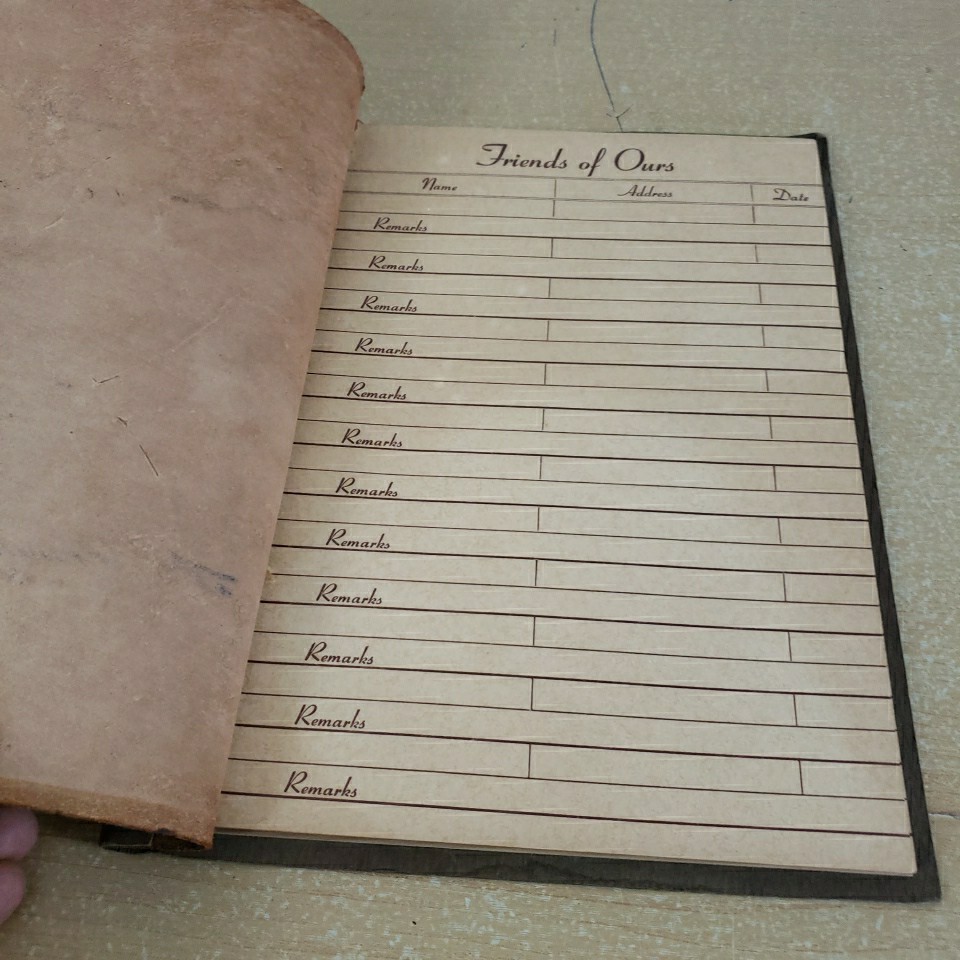 Friends of Ours
Name Address Date
Remarks
Remarks
Remarks
Remarks
Remarks
Remarks
Remarks
Remarks
Remarks
Remarks
Remarks
Remarks